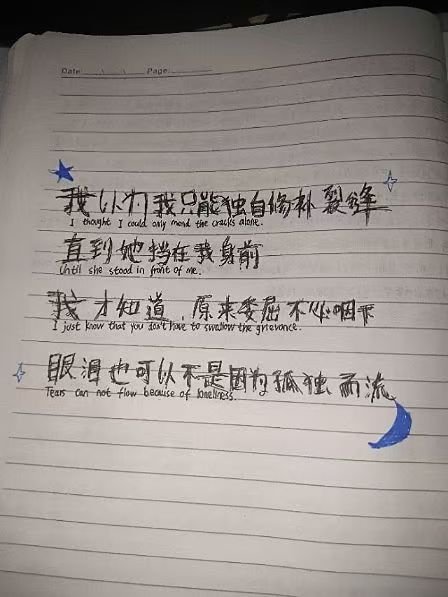 Date: Page:
我以为我只能独自修补裂缝
I thought I could only mend the cracks alone.
直到她挡在我身前
Until she stood in front of me.
我才知道,原来委屈不必咽下
I just know that you don't have to swallow the grievance.
眼泪也可以不是因为孤独而流
Tears can not flow because of loneliness.